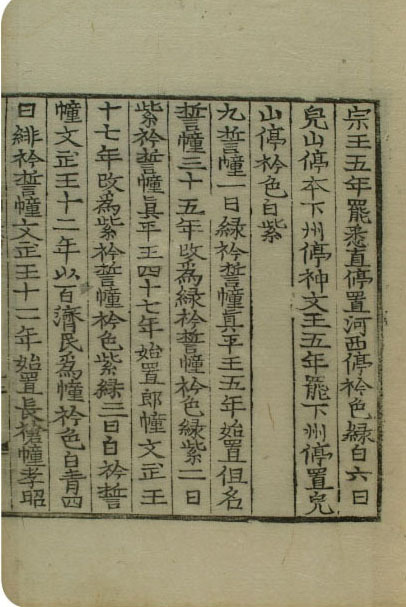 宗王五年罷悉直停置河西停衿色緑白六曰
皃山停夲下州停神文王五年罷下州停置皃
山停衿色白紫
九誓幢一曰緑衿誓幢真平王五年始置但名
誓幢三十五年改為緑衿誓幢衿色緑紫二曰
紫衿誓幢真平王四十七年始置郎幢文武王
十七年改為紫衿誓幢衿色紫緑三曰白衿誓
幢文武王十二年以百濟民為幢衿色白青四
曰緋衿誓幢文武王十二年始置長槍幢孝昭